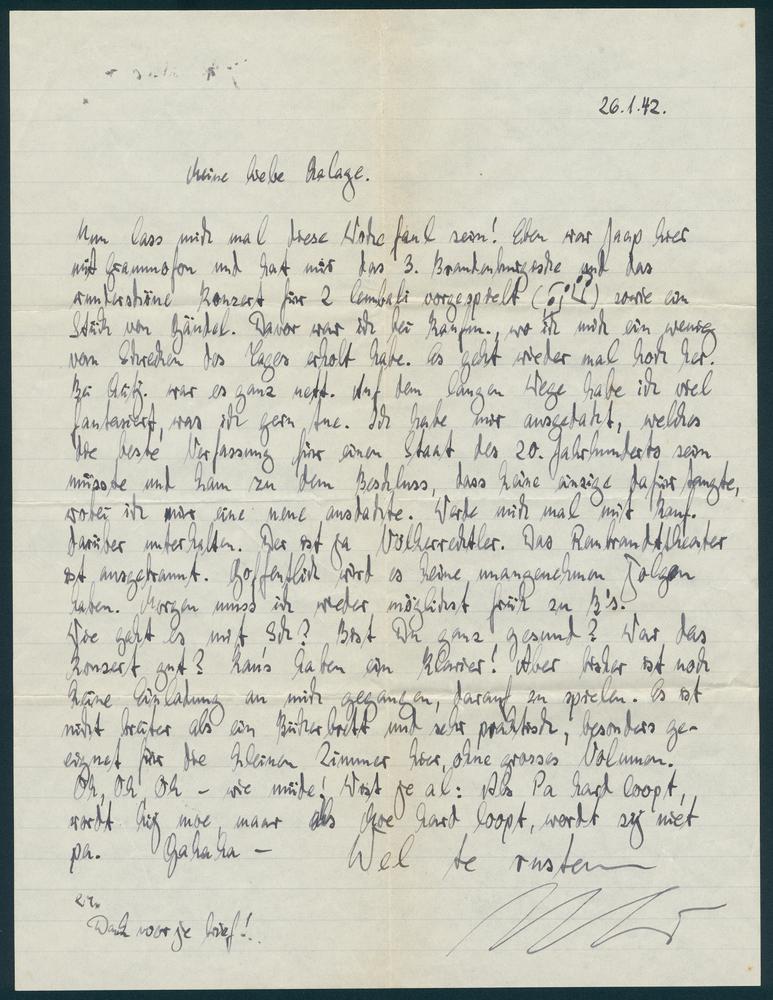 26.1.42.
Meine liebe Aalage.
Nun lass mich mal diese Woche faul sein! Eben war Jaap hier
mit Grammofon und hat mir das 3. Brandenburgische und das
wunderschöne Konzert für 2 Cembali vorgespielt () sowie ein
Stück von Händel. Davor war ich bei Kaufm., wo ich mich ein wenig
vom Schrecken des Tages erholt habe. Es geht wieder mal hoch her.
Bei war es ganz nett. Auf dem langen Wege habe ich viel
fantasiert, was ich gern tue. Ich habe mir ausgedacht, welches
die beste Verfassung für einen Staat des 20. Jahrhunderts sein
müsste und kam zu dem Beschluss, dass keine einzige dafür taugte,
wobei ich mir eine neue ausdachte. Werde mich mal mit Kauf.
darüber unterhalten. Der ist ja Völkerrechtler. Das Rembrandttheater
ist ausgebrannt. Hoffentlich wird es keine unangenehmen Folgen
haben. Morgen muss ich wieder möglichst früh zu B's.
Wie geht es mit Ech? Bist Du ganz gesund? War das
Konzert gut? Kau's haben ein Klavier! Aber bisher ist noch
keine Einladung an mich gegangen, darauf zu spielen. Es ist
nicht breiter als ein Bücherbrett und sehr praktisch, besonders ge-
eignet für die kleinen Zimmer hier, ohne grosses Volumen.
Oh, Oh, Oh – wie müde! Wist je al: Als Pa hard loopt,
wordt hij moe, maar als Moe hard loopt, wordt zij niet
pa. Hahaha – Wel te rusten
Dank voor je brief!